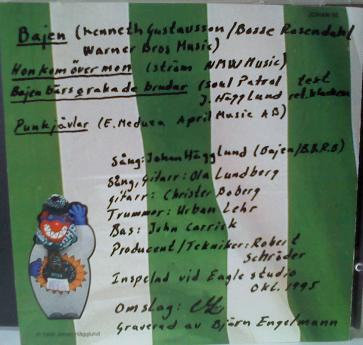 Bajen (Kenneth Gustavsson/Bosse Rosendahl
Warner Bros Music)
Hon kom över mon (Ström NMW Music)
Bajen bärsgrakade brudar (Soul Patrol text
J. Hägglund ref. blacken
Punkjävlar (E. Meduza April Music AB)
Sång: Johan Hägglund (Bajen/B.B.R.B)
Sång, gitarr: Ola Lundberg
gitarr: Christer Boberg
Trummor: Urban Lehr
Bas: John Carrick
Producent/Tekniker: Robert
Schröder
Inspelad vid Eagle studio
Okt. 1995
Omslag:
Graverad av Björn Engelmann
Johan Hägglund